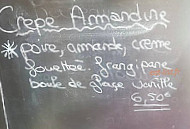 Crepe Armandine
*poire, amande, creme
fouettée. frangipane
boule de glace vanille
6,50€